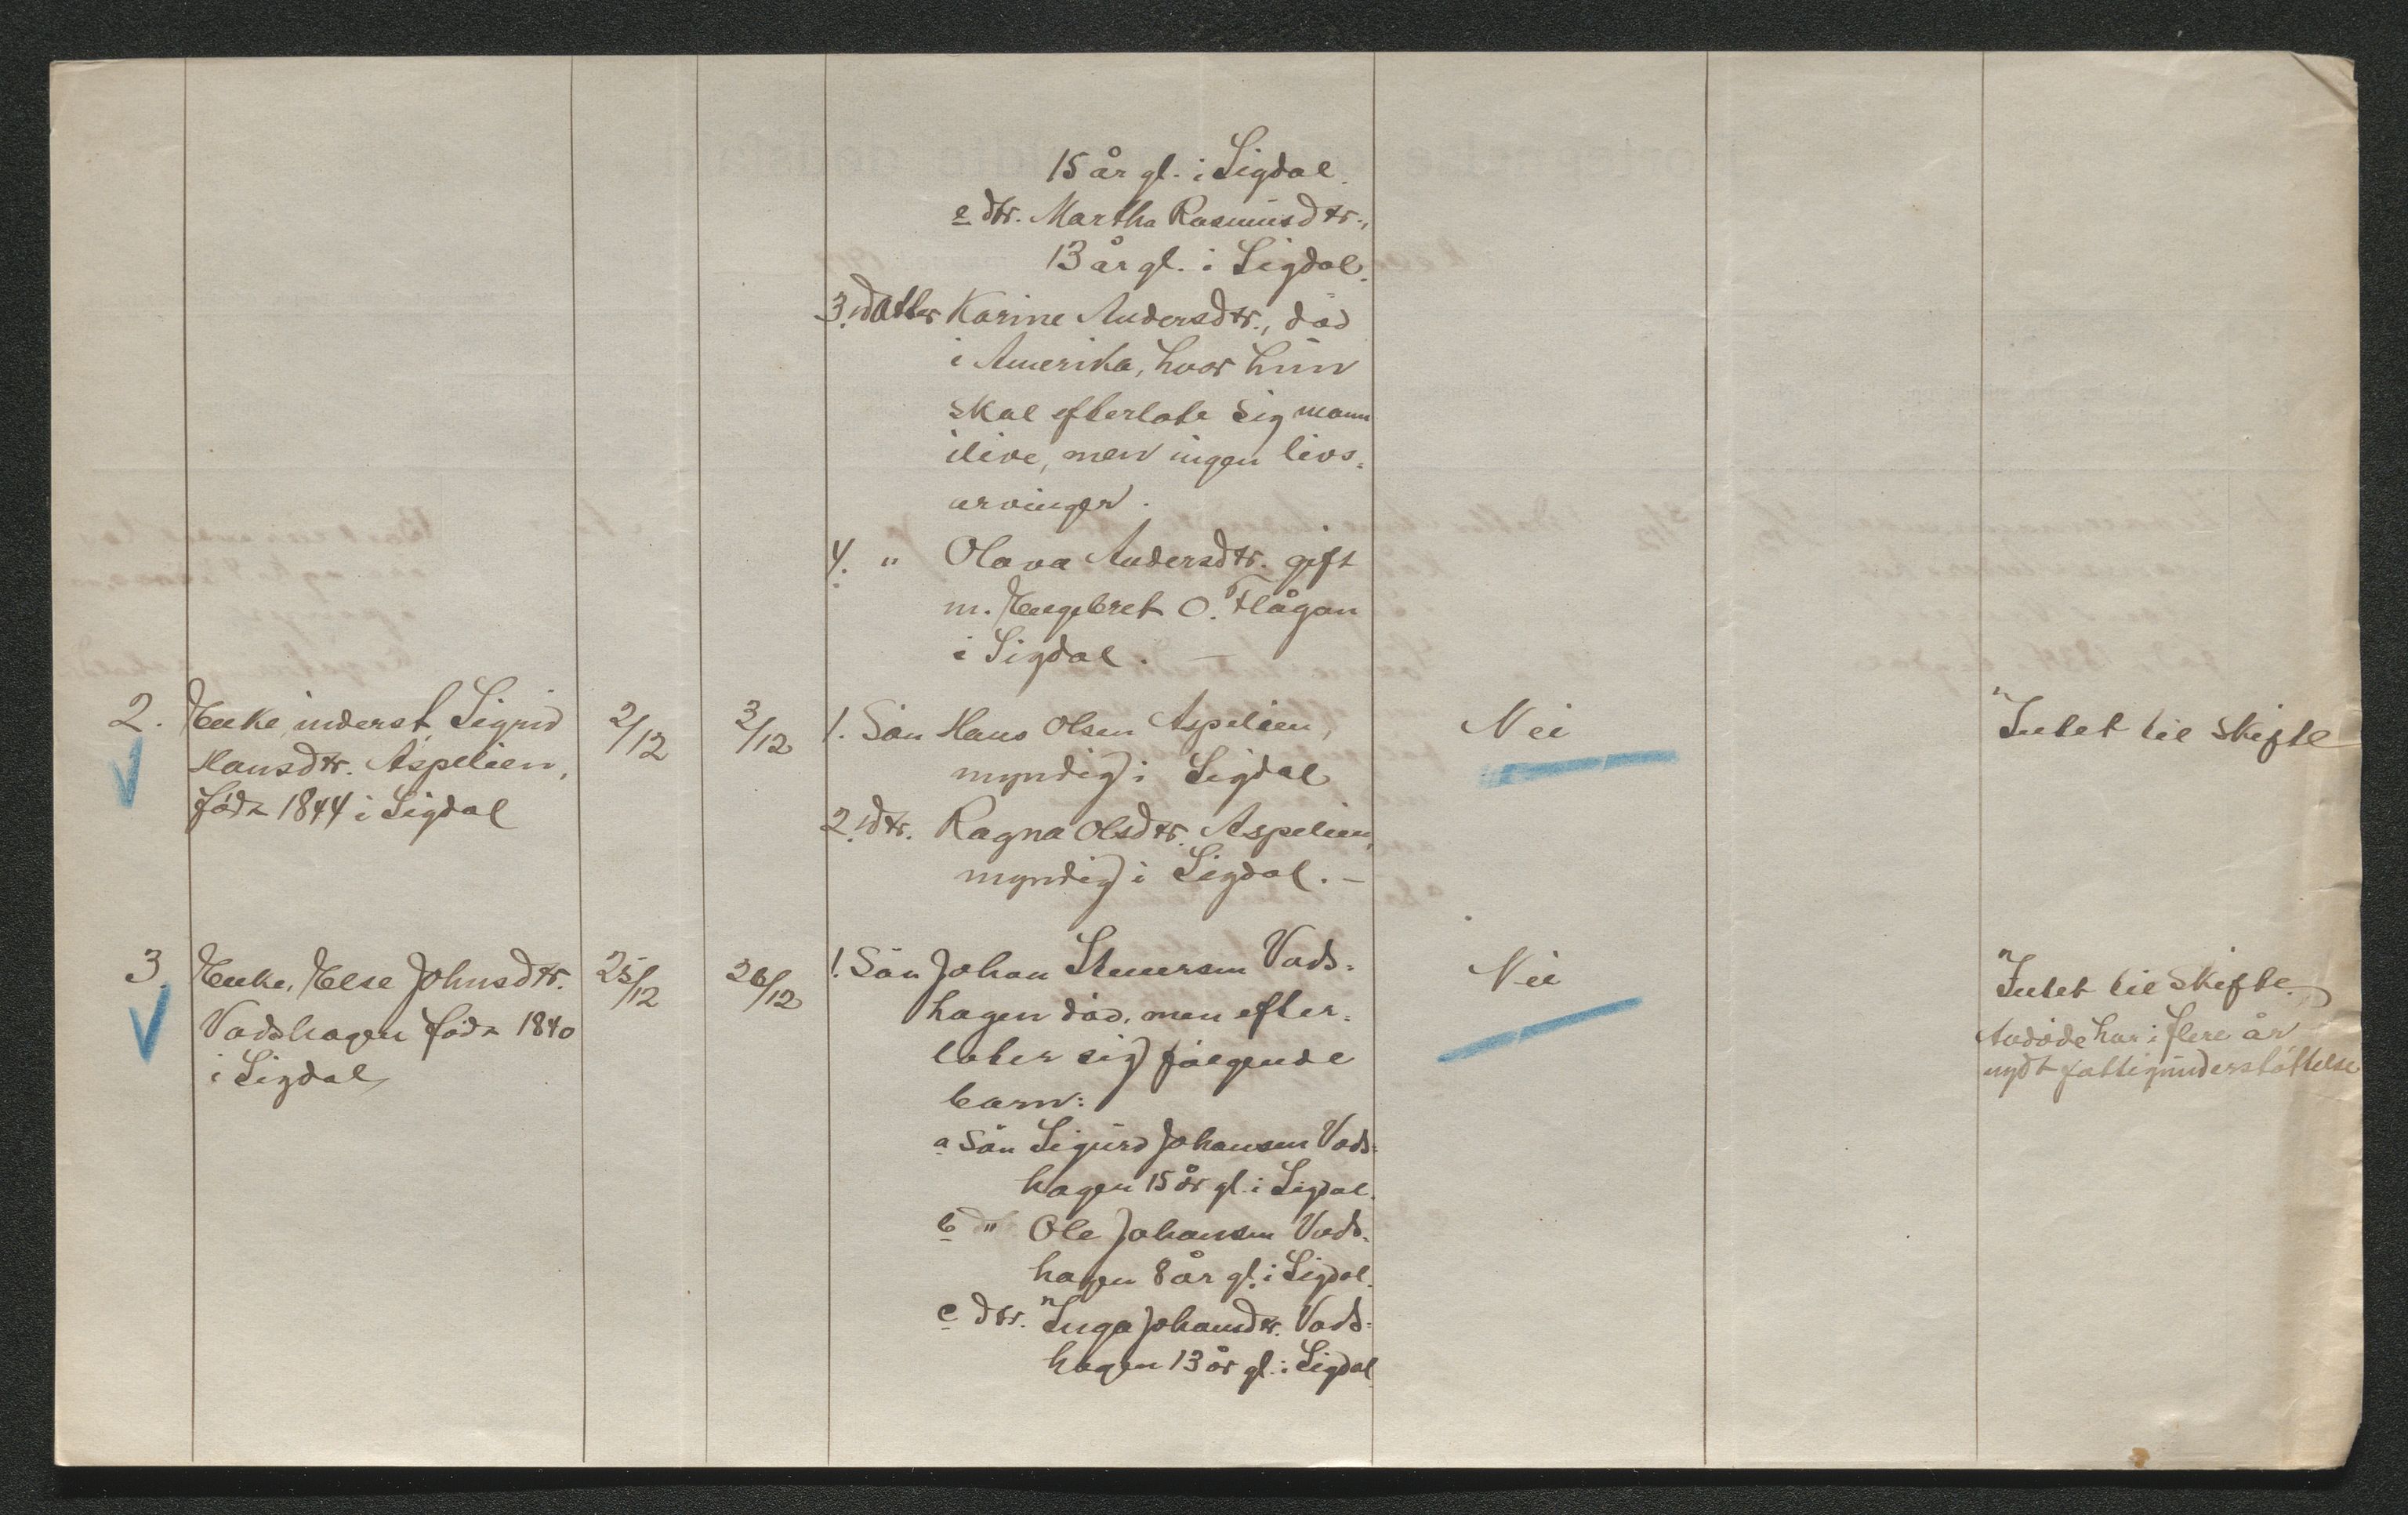 15 år gl. i Sigdal.
e dtr. Martha Rasmusdtr.,
13 år gl. i Sigdal.
3. datter Karine Andersdtr., död
i Amerika, hvor hun
skal efterlate sig mann
ilive, men ingen livs-
arvinger.
4. " Olava Andersdtr. gift
m. Engebret O. Flågan
i Sigdal. —
2. Enke, inderst, Sigrid
Hansdtr. Aspelien,
född 1844 i Sigdal
2/12
3/12
1. Sön Hans Olsen Aspelien,
myndig i Sigdal
2. dtr. Ragna Olsdtr. Aspelien,
myndig i Sigdal. —
Nei
Intet til skifte
3. Enke, Else Johnsdtr.
Vadshagen född 1840
i Sigdal
25/12
26/12
1. Sön Johan Steensen Vads-
hagen död, men efter-
later sig følgende
barn:
a Sön Sigurd Johansen Vads-
hagen 15 år gl. i Sigdal.
b " Ole Johansen Vads-
hagen 8 år gl. i Sigdal.
c dtr. Inga Johansdtr. Vads-
hagen 13 år gl. i Sigdal
Nei
Intet til skifte.
Avdøde har i flere år
nydt fattigunderstöttelse